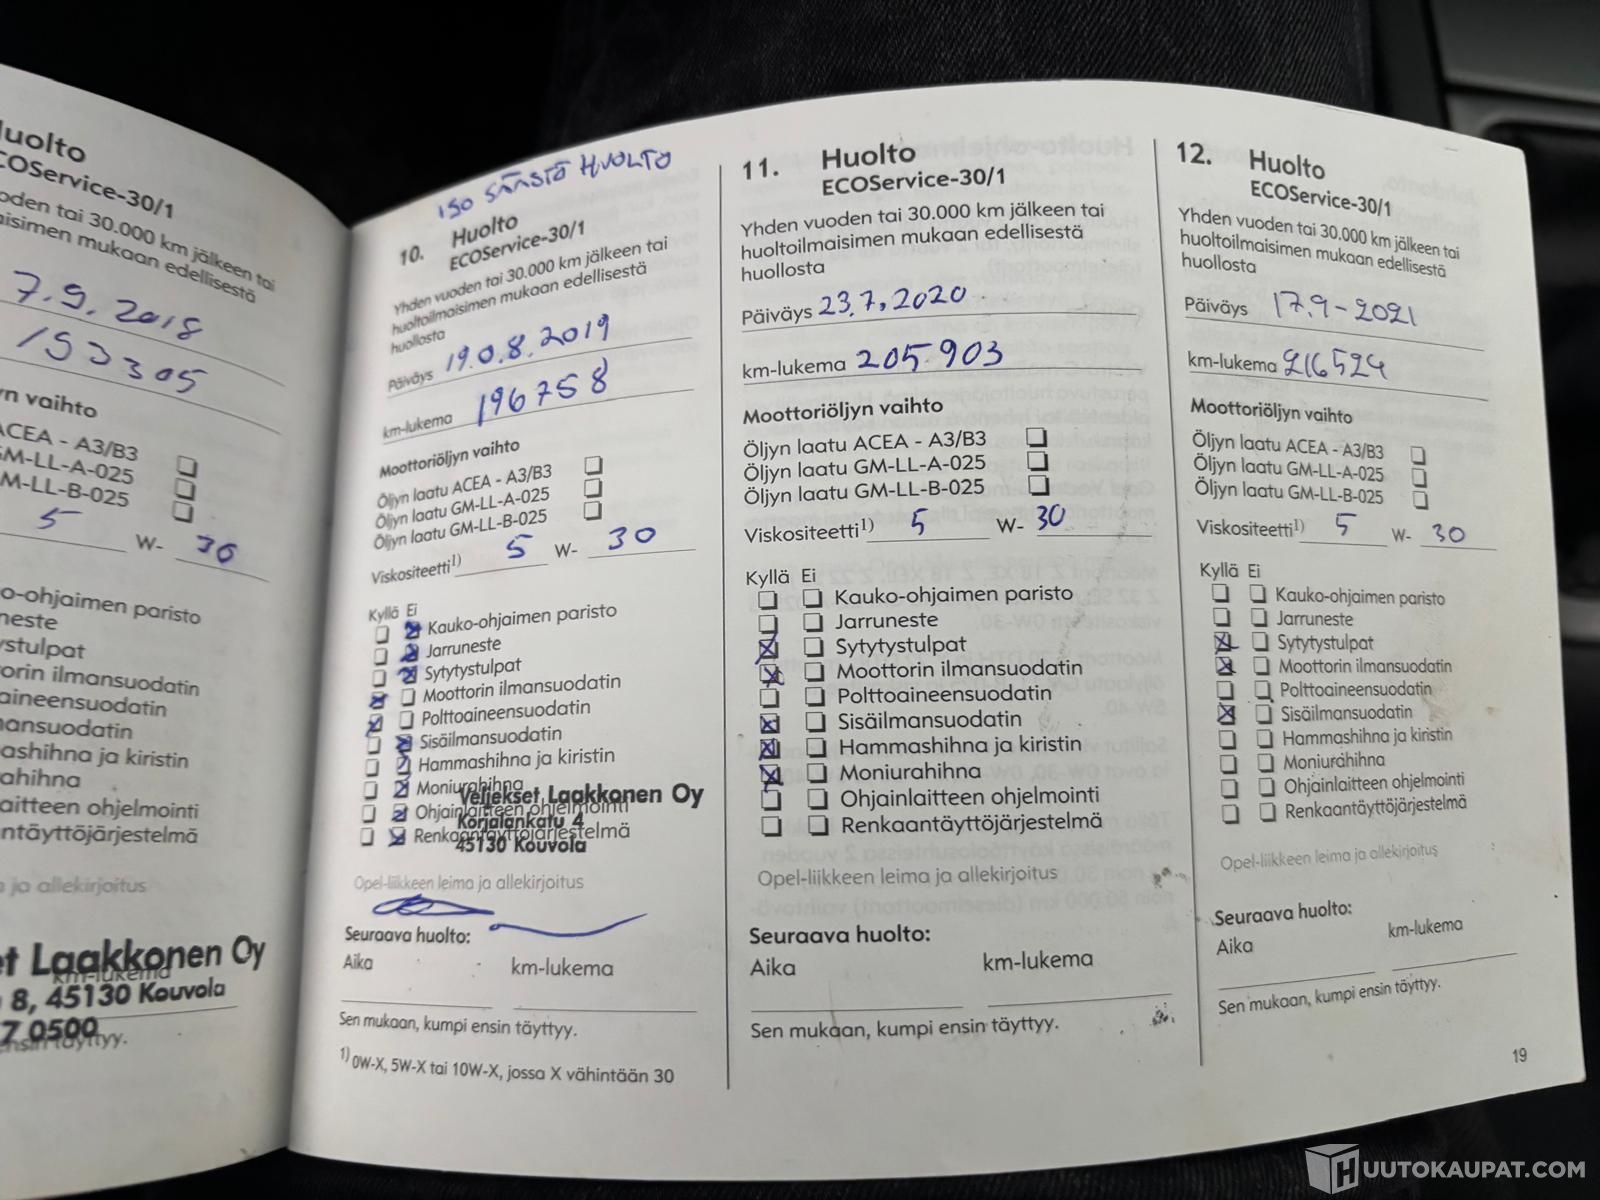 Huolto
ECOService-30/1
oden tai 30.000 km jälkeen tai
aisimen mukaan edellisestä
7.9.2018
193305
yn vaihto
ACEA - A3/B3
GM-LL-A-025
M-LL-B-025
5 W- 30
o-ohjaimen paristo
neste
ystulpat
orin ilmansuodatin
aineensuodatin
mansuodatin
ashihna ja kiristin
rahihna
aitteen ohjelmointi
ntäyttöjärjestelmä
a ja allekirjoitus
et Laakkonen Oy
km-lukema
8, 45130 Kouvola
7 0500
ensin täyttyy.
ISO SÄÄSTÄ HUOLTO
10. Huolto
ECOService-30/1
Yhden vuoden tai 30.000 km jälkeen tai
huoltoilmaisimen mukaan edellisestä
huollosta
Päiväys 19.0.8.2019
km-lukema 196758
Moottoriöljyn vaihto
Öljyn laatu ACEA - A3/B3
Öljyn laatu GM-LL-A-025
Öljyn laatu GM-LL-B-025
Viskositeetti1) 5 W- 30
Kyllä Ei
Kauko-ohjaimen paristo
Jarruneste
Sytytystulpat
Moottorin ilmansuodatin
Polttoaineensuodatin
Sisäilmansuodatin
Hammashihna ja kiristin
Moniurahihna
Veljekset Laakkonen Oy
Ohjainlaitteen ohjelmointi
Korjalankatu 4
Renkaantäyttöjärjestelmä
45130 Kouvola
Opel-liikkeen leima ja allekirjoitus
Seuraava huolto:
Aika km-lukema
Sen mukaan, kumpi ensin täyttyy.
1) 0W-X, 5W-X tai 10W-X, jossa X vähintään 30
11. Huolto
ECOService-30/1
Yhden vuoden tai 30.000 km jälkeen tai
huoltoilmaisimen mukaan edellisestä
huollosta
Päiväys 23.7.2020
km-lukema 205.903
Moottoriöljyn vaihto
Öljyn laatu ACEA - A3/B3
Öljyn laatu GM-LL-A-025
Öljyn laatu GM-LL-B-025
Viskositeetti1) 5 W- 30
Kyllä Ei
Kauko-ohjaimen paristo
Jarruneste
Sytytystulpat
Moottorin ilmansuodatin
Polttoaineensuodatin
Sisäilmansuodatin
Hammashihna ja kiristin
Moniurahihna
Ohjainlaitteen ohjelmointi
Renkaantäyttöjärjestelmä
Opel-liikkeen leima ja allekirjoitus
Seuraava huolto:
Aika km-lukema
Sen mukaan, kumpi ensin täyttyy.
12. Huolto
ECOService-30/1
Yhden vuoden tai 30.000 km jälkeen tai
huoltoilmaisimen mukaan edellisestä
huollosta
Päiväys 17.9-2021
km-lukema 216524
Moottoriöljyn vaihto
Öljyn laatu ACEA - A3/B3
Öljyn laatu GM-LL-A-025
Öljyn laatu GM-LL-B-025
Viskositeetti1) 5 W- 30
Kyllä Ei
Kauko-ohjaimen paristo
Jarruneste
Sytytystulpat
Moottorin ilmansuodatin
Polttoaineensuodatin
Sisäilmansuodatin
Hammashihna ja kiristin
Moniurahihna
Ohjainlaitteen ohjelmointi
Renkaantäyttöjärjestelmä
Opel-liikkeen leima ja allekirjoitus
Seuraava huolto:
Aika km-lukema
Sen mukaan, kumpi ensin täyttyy.
19
HUUTOKAUPAT.COM